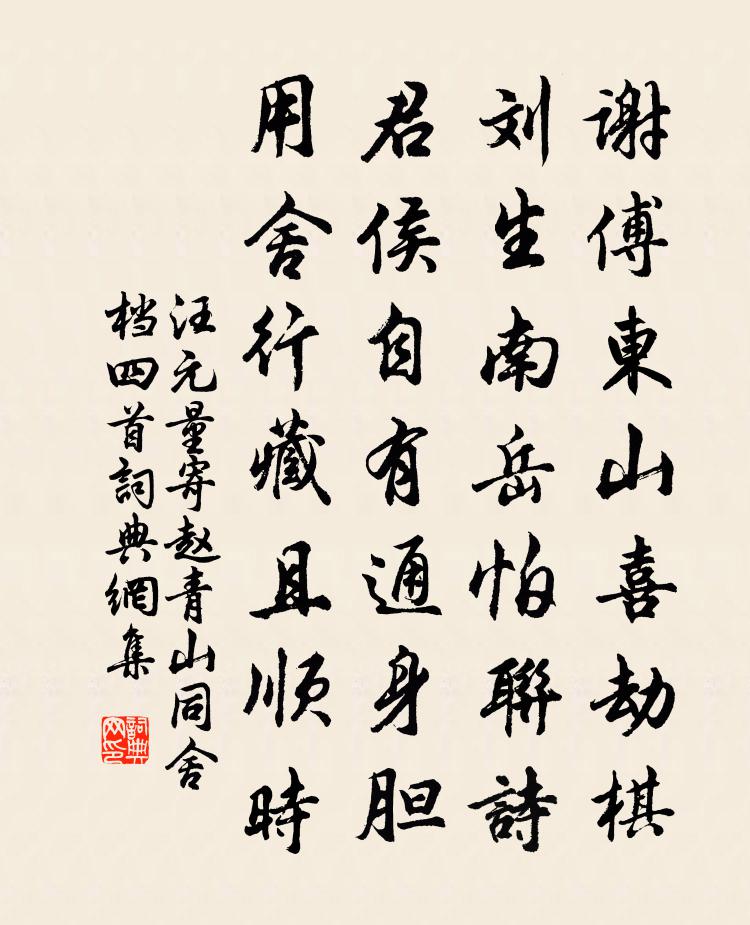 谢傅東山喜劫棋
刘生南岳怕聯詩
君侯自有通身胆
用舍行藏且順時
汪元量寄赵青山同舍
档四首詞典網集
詞典
网印